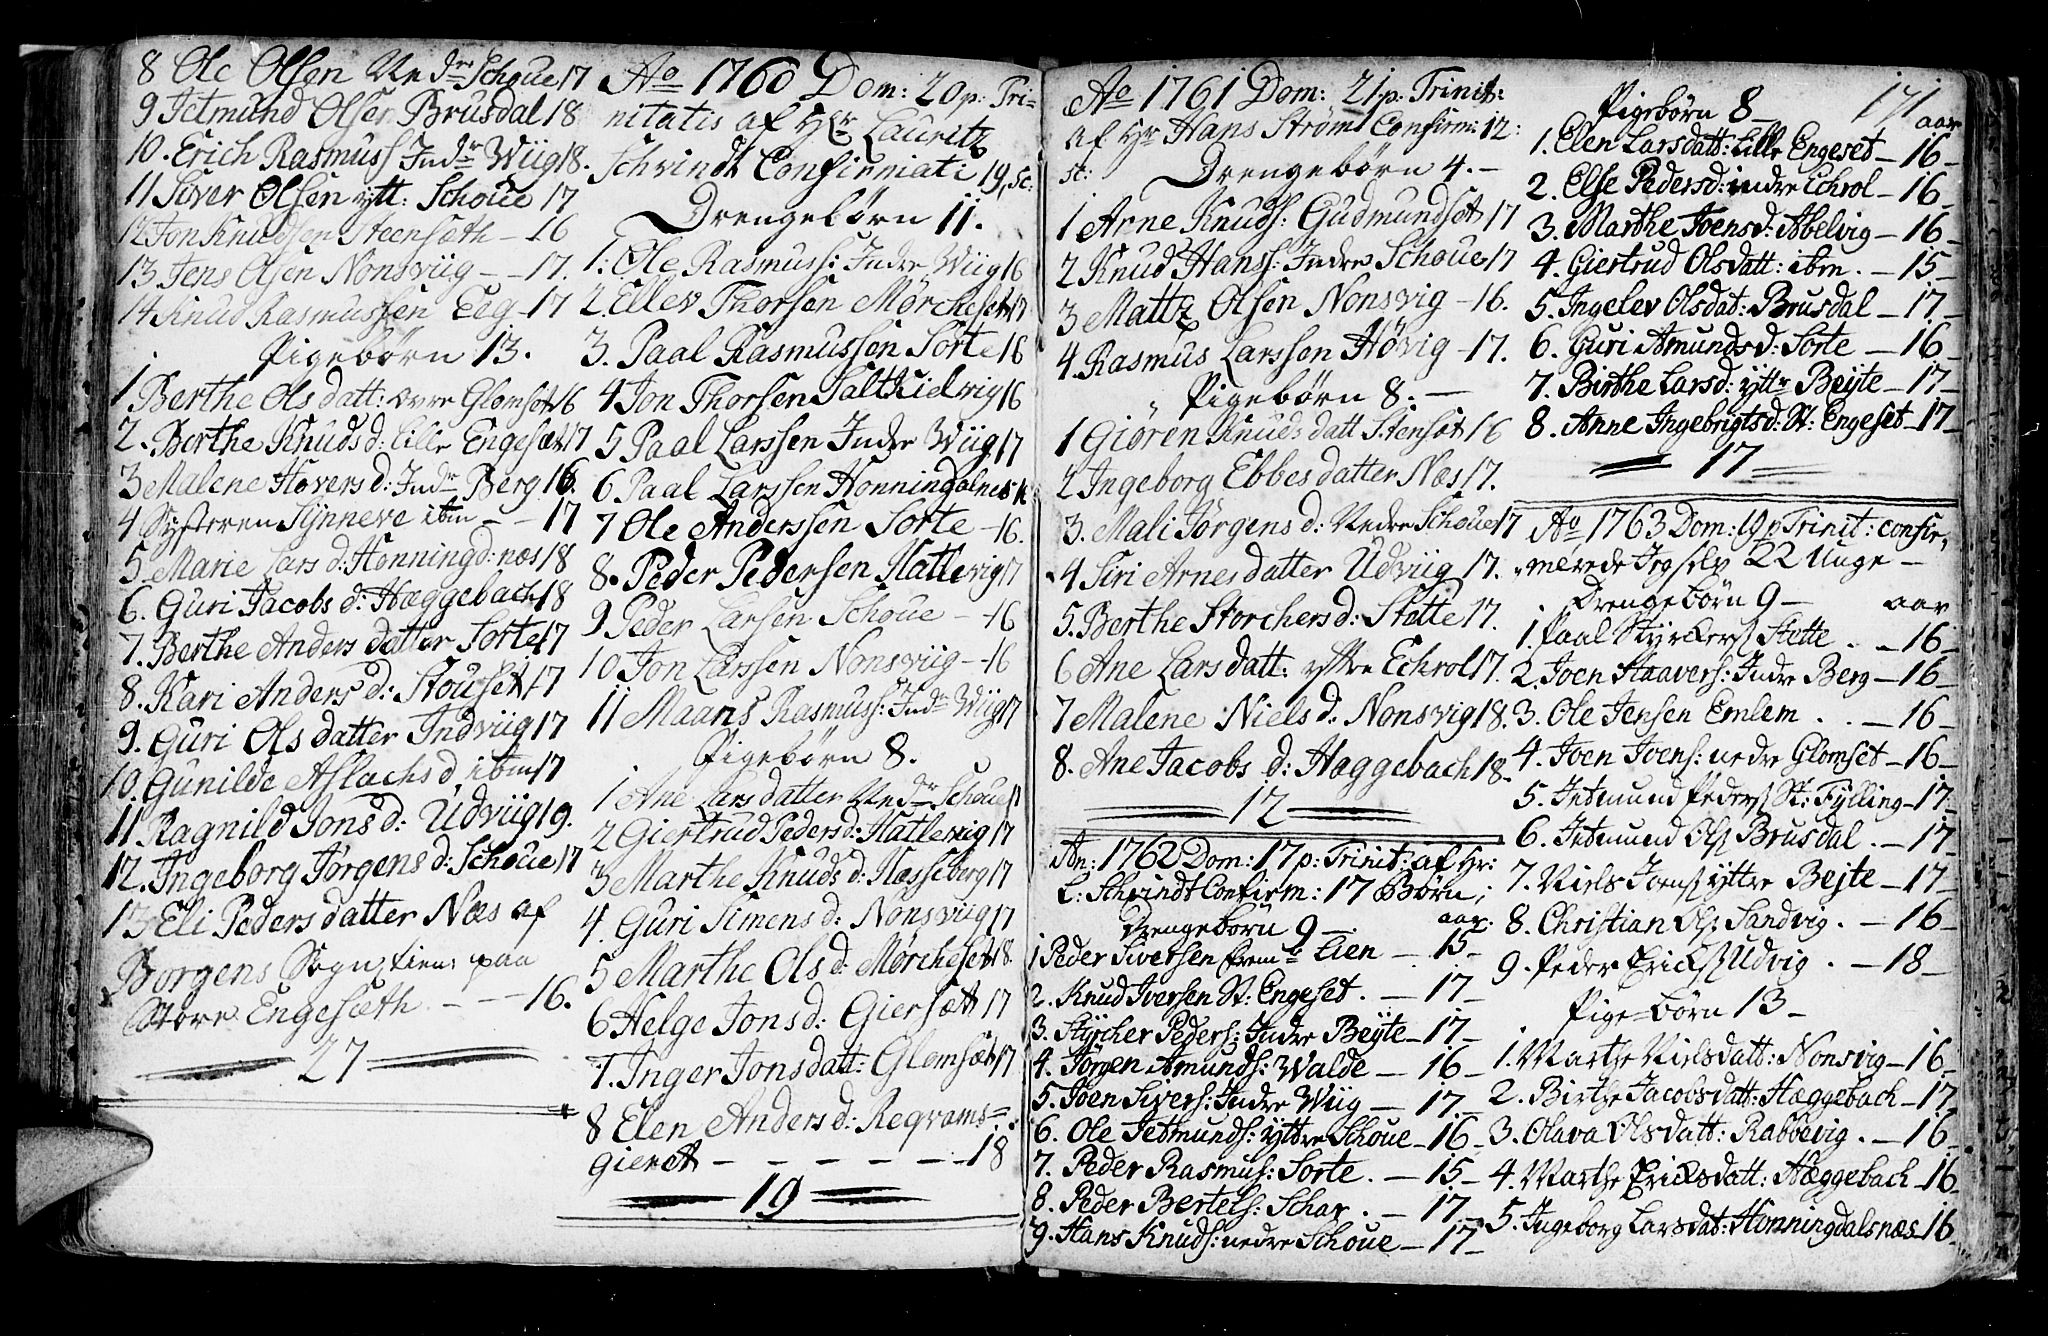 8 Ole Olsen Nedre Schoue 17
9 Jetmund Olsen Brusdal 18
10. Erich Rasmuss Indr Wiig 18.
11 Siver Olsen ytt: Schoue 17
12 Jon Knudsen Steensæth - 16
13 Jens Olsen Nonsviig - - 17.
14 Knud Rasmussen Eeg - 17
Pigebørn 13.
1 Berthe Olsdatt: øvre Glomset 16
2. Berthe Knudsd: Lille Engesæt 17
3 Malene Hoversd: Indr Berg 16.
4 Systeren Synneve ibm - - 17
5. Marie Larsd: Honningd:næs 18
6. Guri Jacobsd: Hæggebach 18
7. Berthe Andersdatter Sorte 17
8. Kari Andersd: Stouset 17
9. Guri Olsdatter Indviig 17
10. Gunilde Aslachsd ibm 17
11 Ragnild Jonsd: Udviig 19.
12. Ingeborg Jørgensd: Schoue 17
13 Eli Pedersdatter Næs af
Borgens Sogn, tien: paa
Store Engesæth - - - 16.
27
Ao 1760 Dom: 20 p. Tri-
nitatis af Hr Lauritz
Schvindt Confirmati 19, sc:
Drengebørn 11.
1. Ole Rasmuss: Indre Wiig 16
2. Ellev Thorsen Mørcheset 17
3. Paal Rasmussen Sorte 16
4 Jon Thorsen Saltkielvig 16
5 Paal Larssen Indre Wiig 17
6 Paal Larssen Honningdalnes 16
7 Ole Anderssen Sorte - 16.
8. Peder Pedersen Hatlevig 17
9 Peder Larsen Schoue - 16
10 Jon Larssen Nonsviig - 16
11 Maans Rasmuss: Indr Wiig 17
Pigebørn 8.
1 Ane Larsdatter Nedr Schoue 17
2 Giertrud Pedersd: Hatlevig 17
3 Marthe Knudsd: Hesseberg 17
4. Guri Simensd: Nonsviig 17
5 Marthe Olsd: Mørcheset 18.
6 Helge Jonsd: Giersætt 17
7. Inger Jonsdatt: Glomsæt 17
8 Elen Andersd: Reqvams=
gieret - - - - - 18
19
Ao 1761 Dom: 21 p. Trinit:
af Hr Hans Strøm Confirm: 12:
st: Drengebørn 4. -
1 Arne Knuds: Gudmundset 17
2 Knud Hanss: Indre Schoue 17
3 Mattz Olsen Nonsvig - 16.
4. Rasmus Larssen Høvig - 17.
Pigebørn 8. -
1 Giøren Knudsdatt Stensøt 16
2 Ingeborg Ebbesdatter Næs 17.
3. Mali Jørgensd: Nedre Schoue 17
4 Siri Arnesdatter Udviig 17.
5. Berthe Storchersd: Stette 17.
6 Ane Larsdatt: yttre Eckrol 17.
7 Malene Nielsd: Nonsvig 18.
8. Ane Jacobsd: Hæggebach 18.
12
An: 1762 Dom: 17 p: Trinit: af Hr:
L: Schvindt Confirm: 17 Børn;
Drengebørn 9 - aar:
1 Peder Siversen Lien - 15 -
2. Knud Iversen St: Engeset. - 17 -
3. Stÿrcher Peders: Indre Beÿte - 17 -
4. Jørgen Amunds: Walde - 16 -
5. Joen Sivers: Indre Wiig - 17 -
6. Ole Jetmunds: yttre Schoue - 16 -
7. Peder Rasmus: Sorte. - 15 -
8. Peder Bertels: Schar. - 17 -
9. Hans Knuds: nedre Schoue - 17 -
Pigebørn 8 - 171
aar
1. Elen Larsdatt: Lille Engeset - 16 -
2. Else Pedersd: indre Echrol - 16 -
3. Marthe Joensd: Abelvig - 16 -
4. Giertrud Olsdatt: ibm. - 15 -
5. Ingelev Olsdat: Brusdal - 17 -
6. Guri Amundsd: Sorte - 16 -
7. Birthe Larsd: yttr Beÿte - 17 -
8. Anne Ingebrigtsd: St: Engeset - 17 -
17
Ao 1763 Dom: 19 p Trinit: confir,
,merede Jeg selv 22 Unge -
Drengebørn 9 - aar
1. Paal Styrckers: Stette. - 16 -
2. Joen Haavers: Indre Berg - 16 -
3. Ole Jensen Emlem . . - 16 -
4. Joen Joens: nedre Glomset - 16 -
5. Jetmund Peders: St: Fylling - 17 -
6. Jetmund Ols: Brusdal. - 17 -
7. Niels Joens: yttre Bejte - 17 -
8. Christian Ols: Sandvig. - 16 -
9. Peder Ericks: Udvig. - 18 -
Pige=børn 13 -
1. Marthe Nielsdatt: Nonsvig - 16 -
2. Birthe Jacobsdatt: Hæggebach - 17
3. Olava Olsdatt: Rabbevig. - 16 -
4. Marthe Ericksdatt: Hæggebach - 16 -
5. Ingeborg Larsdat: Honningdalsnæs 16 -